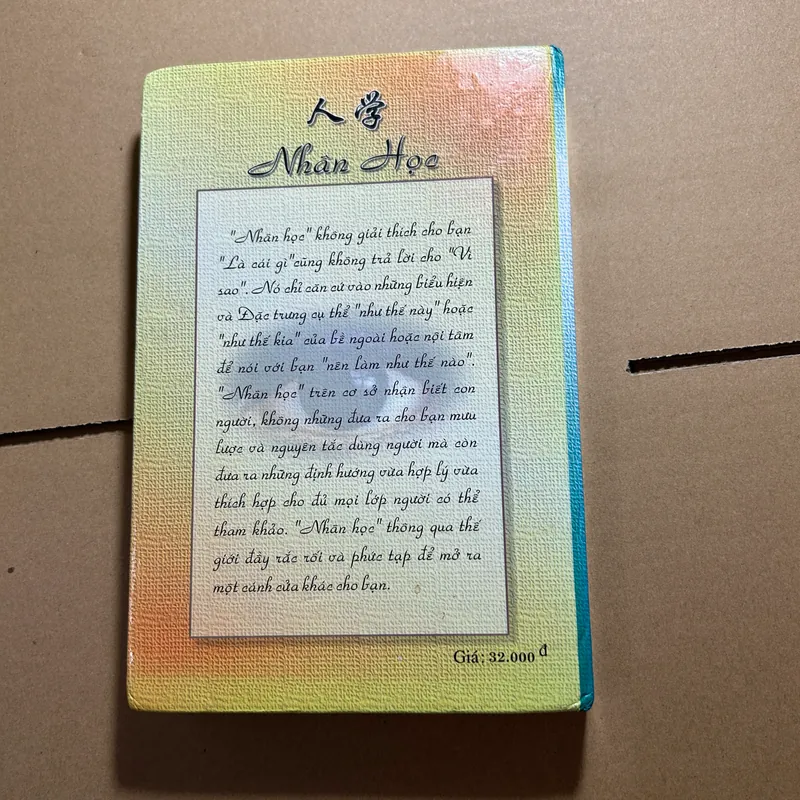 人学
Nhân Học
"Nhân học" không giải thích cho bạn
"Là cái gì"cũng không trả lời cho "Vì
sao". Nó chỉ căn cứ vào những biểu hiện
và Đặc trưng cụ thể "như thế này" hoặc
"như thế kia" của bề ngoài hoặc nội tâm
để nói với bạn "nên làm như thế nào".
"Nhân học" trên cơ sở nhận biết con
người, không những đưa ra cho bạn mưu
lược và nguyên tắc dùng người mà còn
đưa ra những định hướng vừa hợp lý vừa
thích hợp cho đủ mọi lớp người có thể
tham khảo. "Nhân học" thông qua thế
giới đầy rắc rối và phức tạp để mở ra
một cánh cửa khác cho bạn.
Giá: 32.000 đ